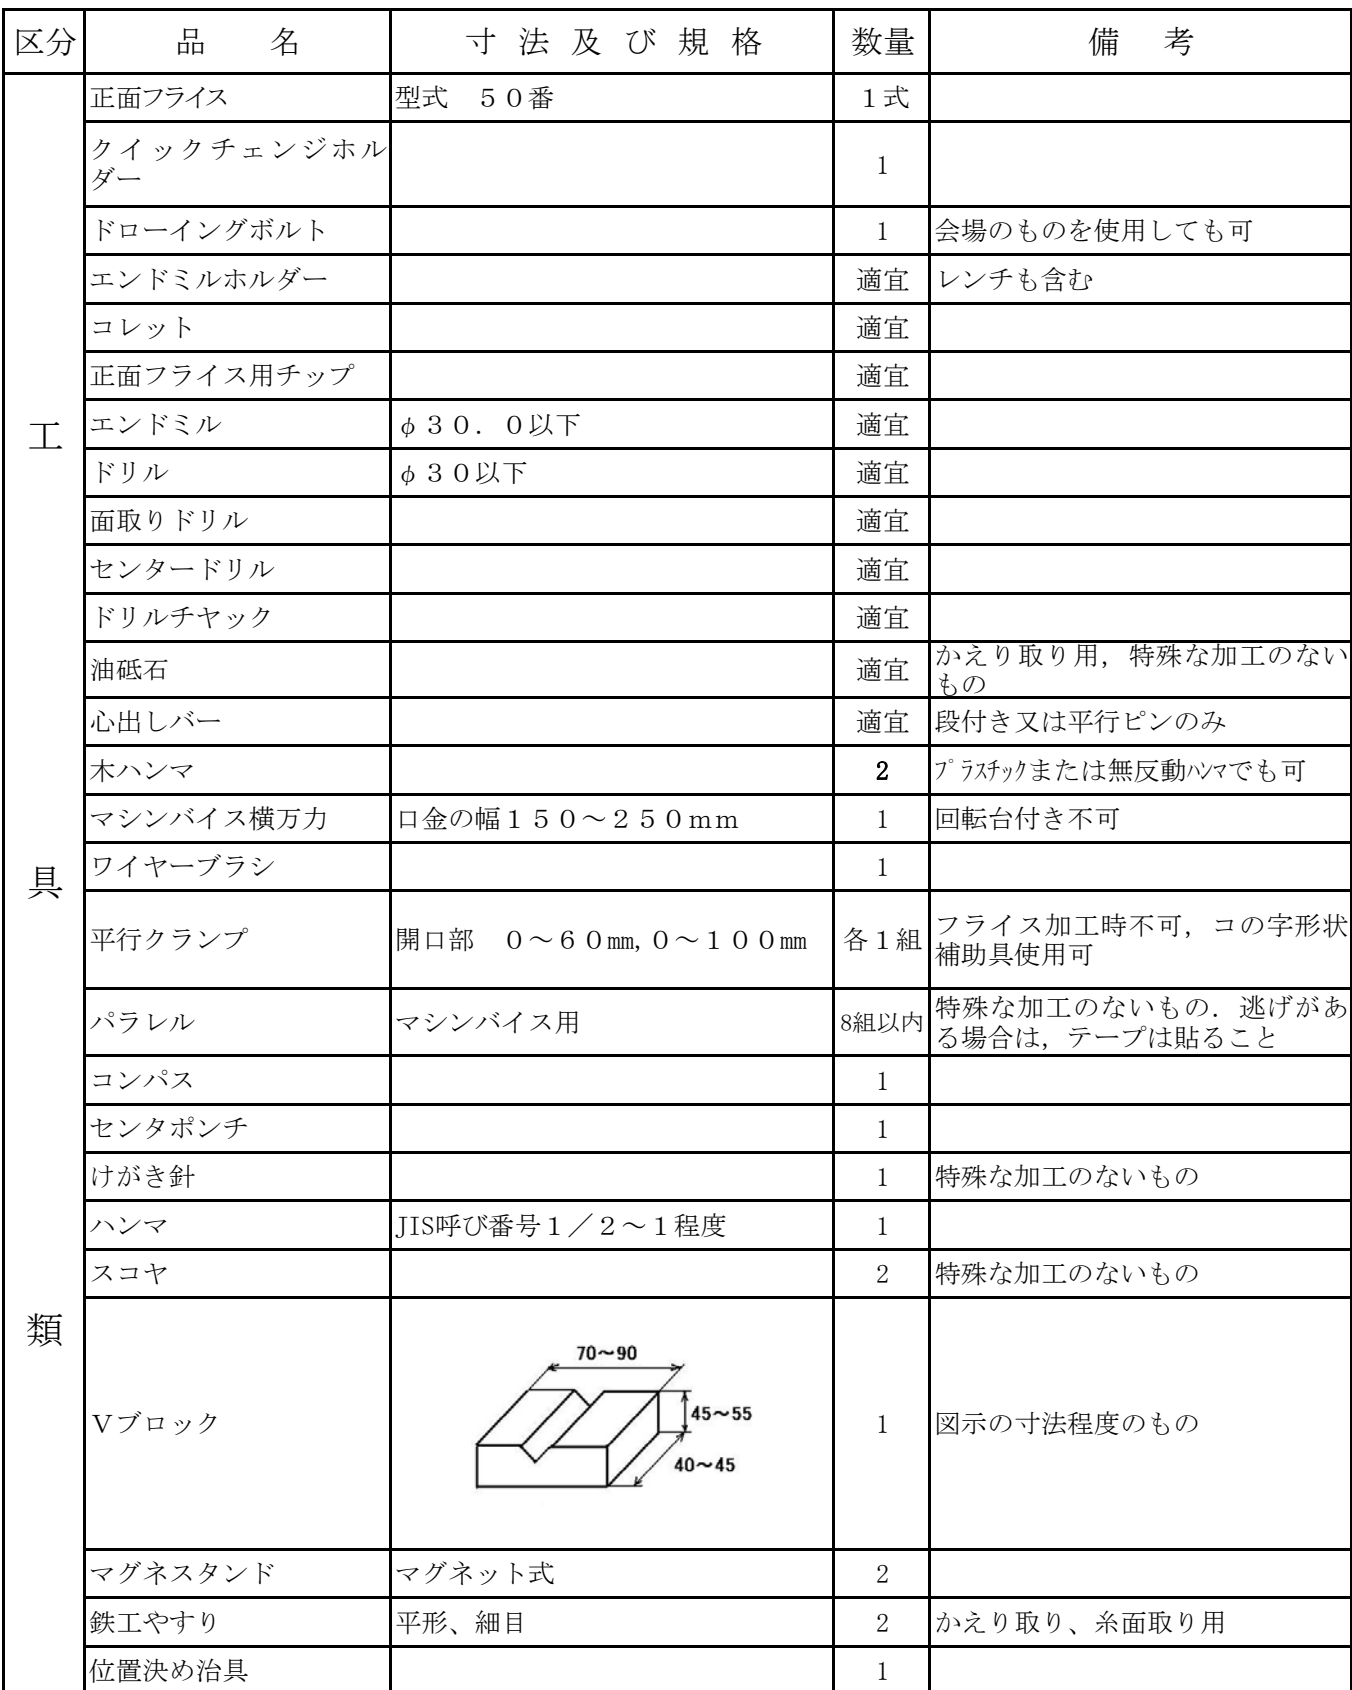 区分 品 名 寸 法 及 び 規 格 数量 備 考
工具類
正面フライス 型式 ５０番 １式
クイックチェンジホル
ダー 1
ドローイングボルト 1 会場のものを使用しても可
エンドミルホルダー 適宜 レンチも含む
コレット 適宜
正面フライス用チップ 適宜
エンドミル φ３０．０以下 適宜
ドリル φ３０以下 適宜
面取りドリル 適宜
センタードリル 適宜
ドリルチヤック 適宜
油砥石 適宜 かえり取り用，特殊な加工のない
もの
心出しバー 適宜 段付き又は平行ピンのみ
木ハンマ 2 ﾌﾟﾗｽﾁｯｸまたは無反動ﾊﾝﾏでも可
マシンバイス横万力 口金の幅１５０～２５０ｍｍ 1 回転台付き不可
ワイヤーブラシ 1
平行クランプ 開口部 ０～６０㎜,０～１００㎜ 各１組 フライス加工時不可，コの字形状
補助具使用可
パラレル マシンバイス用 8組以内 特殊な加工のないもの．逃げがあ
る場合は，テープは貼ること
コンパス 1
センタポンチ 1
けがき針 1 特殊な加工のないもの
ハンマ JIS呼び番号１／２～１程度 1
スコヤ 2 特殊な加工のないもの
Ｖブロック 1 図示の寸法程度のもの
70～90
45～55
40～45
マグネスタンド マグネット式 2
鉄工やすり 平形、細目 2 かえり取り、糸面取り用
位置決め治具 1